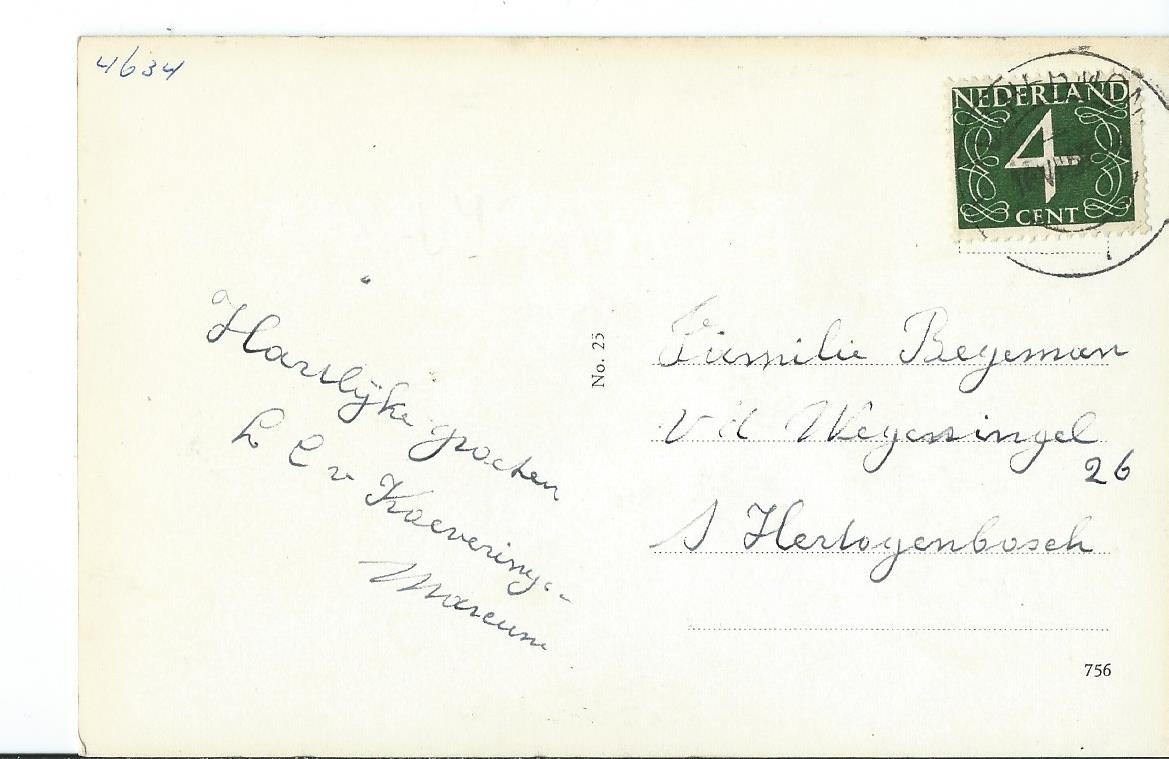 4634
NEDERLAND
4
CENT
Hartlijke groeten
L C v Koeveringe-
Marcuse
No. 25
Familie Begeman
v d Wegensingel
26
S Hertogenbosch
756